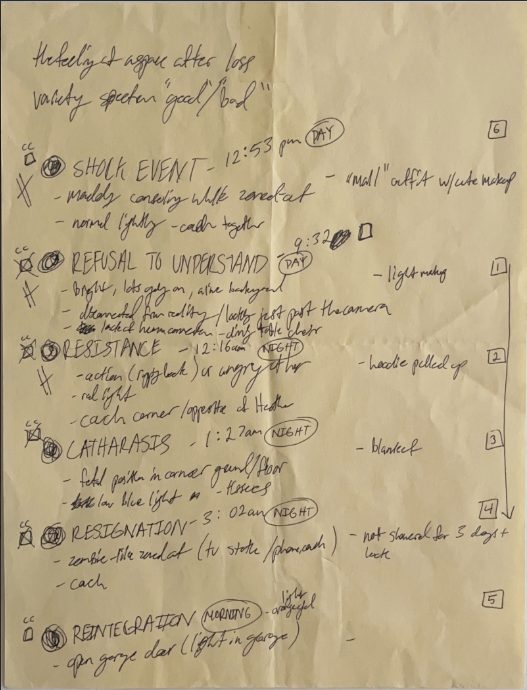 the feeling of after loss
variety "good"/"bad"
6
cc
SHOCK EVENT - 12:53 pm DAY
- consoling while zoned out
- "mall" outfit w/cute makeup
- normal lighting - couch together
cc
9:32
REFUSAL TO UNDERSTAND - DAY
1
- bright, lots going on, alive background
- light makeup
- disconnected from reality / looking just past the camera
- lack of - table
RESISTANCE - 12:16am NIGHT
2
- action ( ) or angry
- hoodie pulled up
- red light
- couch corner/opposite of Heather
cc
CATHARASIS - 1:27am NIGHT
3
- fetal position in corner ground/floor
- blanket
- low blue light - tissues
cc
RESIGNATION - 3:02am NIGHT
4
- zombie-like zoned out (tv static/phone/couch)
- not showered for 3 days+ look
- couch
5
cc
REINTEGRATION MORNING - light
- open garage door (light in garage)
-